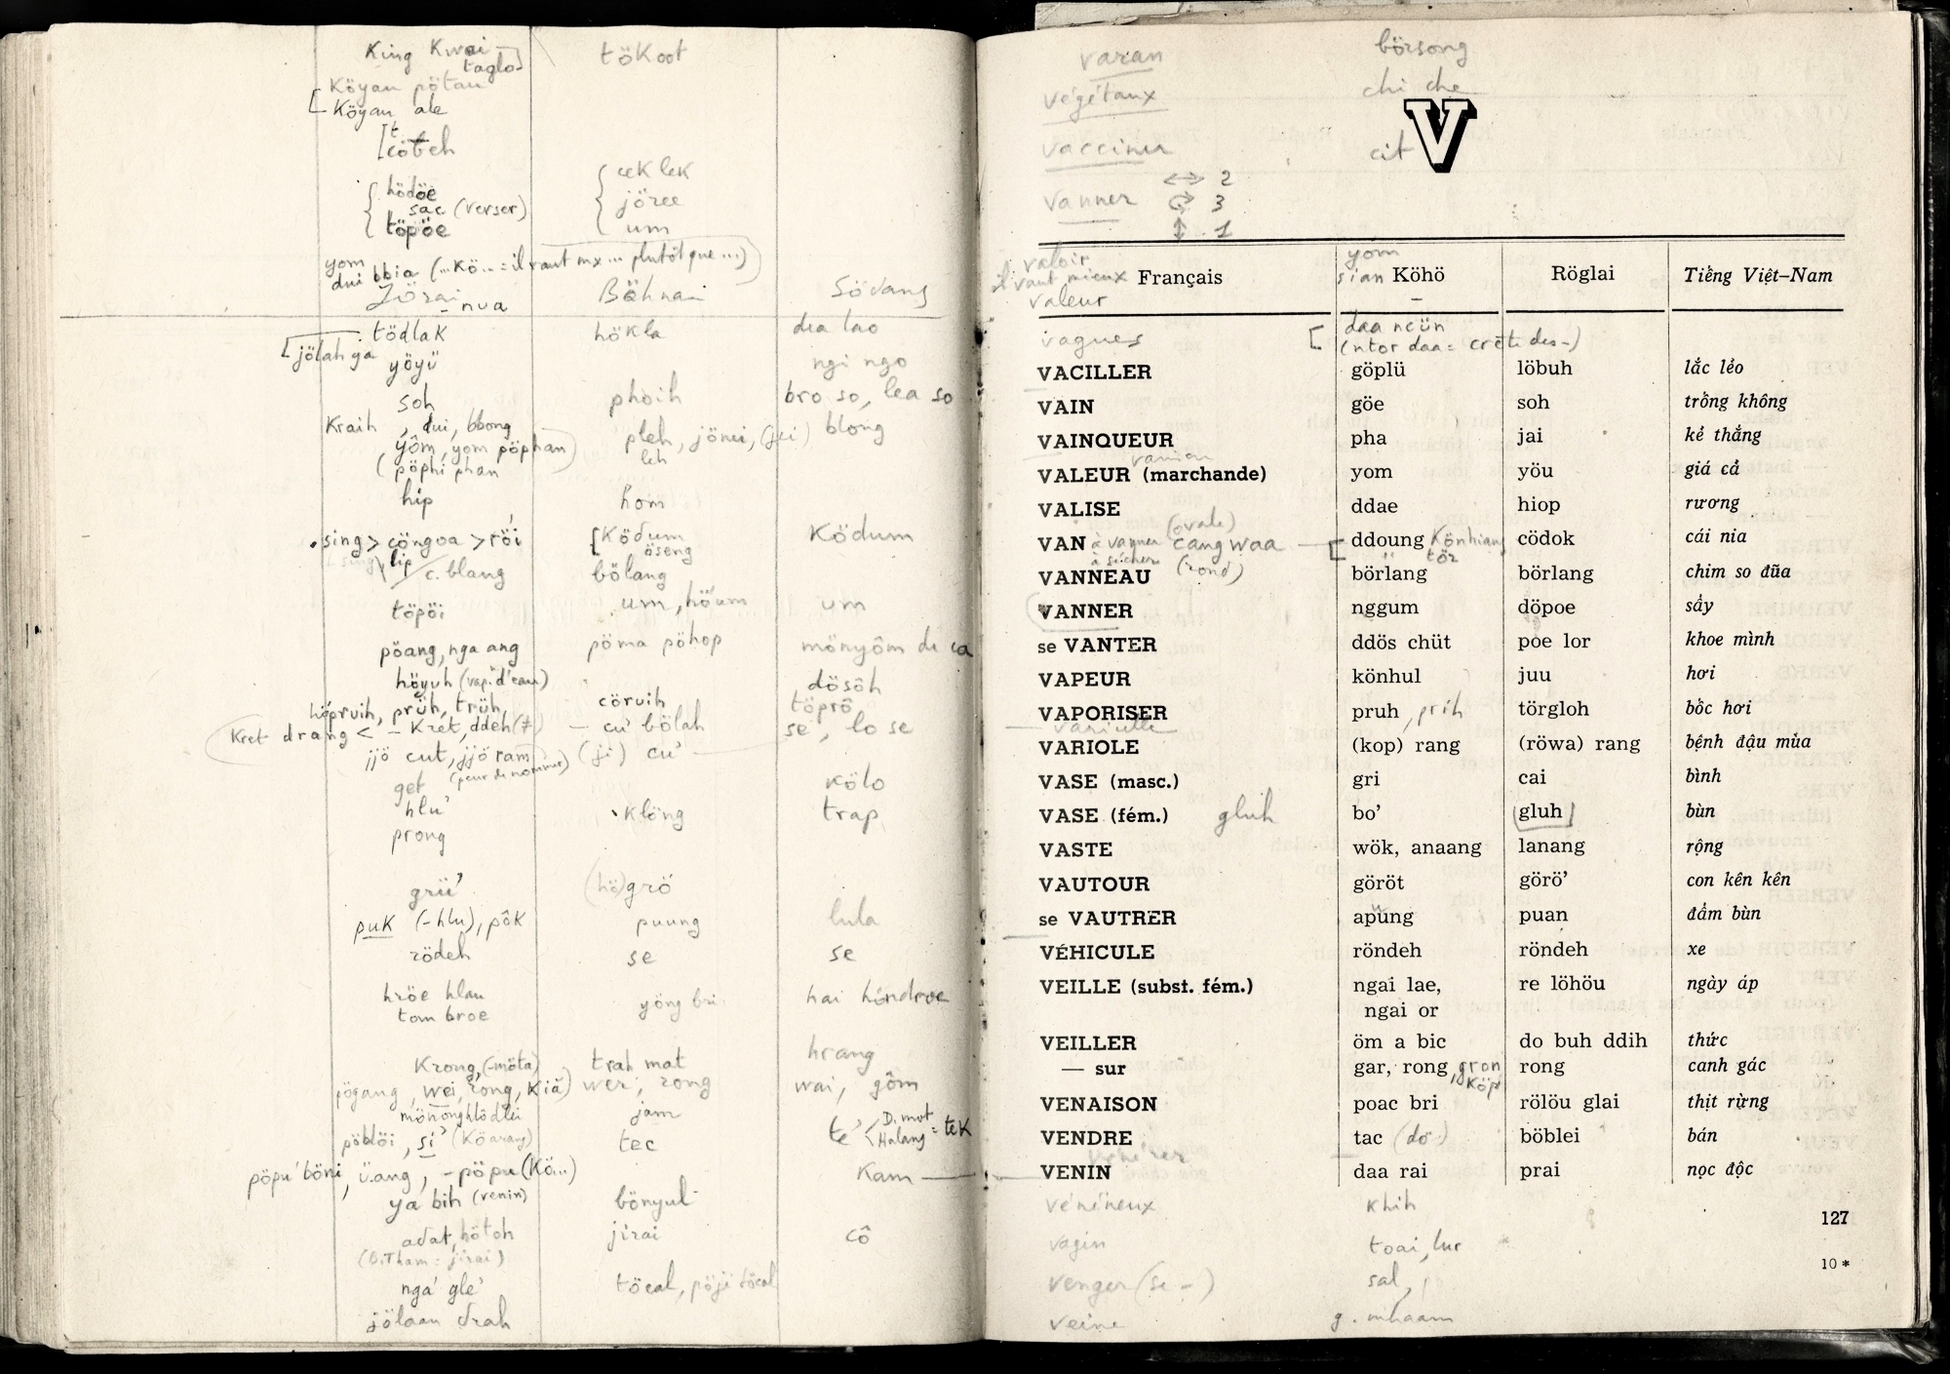 King Kwai
taglo
tökoot
Köyan pötau
Köyan ale
cöteh
hödöe
sac (verser)
töpöe
cek lek
jöree
um
yom
dui bbia (...Kö... = il vaut mx ... plutôt que ...)
Jörai
nua
Böhnar
Södang
tödlak
hökla
dia lao
jölah ga
yöyü
ngi ngo
soh
phoih
bro so, lea so
Kraih, dui, bbong
yôm, yom pöphan
(pöphi phan
pleh, jönei, (jei)
leh
blong
hip
hom
sing > cöngoa > röi
Ködum
öseng
Ködum
lip
c. blang
bölang
töpöi
um, höum
um
pöang, nga ang
pöma pöhop
mönyôm de ca
höyuh (vap. d'eau)
dösôh
höpruih, prüh, trüh,
cöruih
töprô
Kret drang < – Kret, ddeh (7)
– cu' bölah
se, lo se
jjö cut, jjö ram
(peur de nommer)
(ji) cu'
get
kölo
hlu'
klöng
trap
prong
grü'
(hö)grö
puk (–hlu), pôk
puung
lula
rödeh
se
se
hröe hlau
tom broe
yöng bri
hai höndroe
Krong, (–möta)
trah mat
hrang
jögang, wei, rong, Kiă)
wer, rong
wai, gôm
mönonghlödlei
jam
pöblöi, si' (Köarang)
tec
te < D. mot
Halang = tek
pöpu' böni, ü.ang, – pöpu (Kö...)
Kam
ya bih (venin)
bönyul
adat, hötoh
(B.Tham: jirai)
jirai
cô
nga' gle'
töcal, pöji töcal
jölaan drah
varan
börsong
végétaux
chi che
vacciner
cit
V
vanner
↔ 2
3
↕ 1
valoir
il vaut mieux
valeur
yom
sian
Français Köhö Röglai Tiếng Việt-Nam
vagues
daa ncün
(ntor daa = crête des –)
VACILLER göplü löbuh lắc lẻo
VAIN göe soh trống không
VAINQUEUR pha jai kẻ thắng
VALEUR (marchande) yom yöu giá cả
VALISE ddae hiop rương
(ovale)
VAN à vanner cang waa ddoung Könhiang cödok cái nia
à sécher (rond) tör
VANNEAU börlang börlang chim so đũa
VANNER nggum döpoe sảy
se VANTER ddös chüt poe lor khoe mình
VAPEUR könhul juu hơi
VAPORISER pruh, prih törgloh bốc hơi
VARIOLE (kop) rang (röwa) rang bệnh đậu mùa
VASE (masc.) gri cai bình
VASE (fém.) gluh bo' gluh bùn
VASTE wök, anaang lanang rộng
VAUTOUR göröt görö' con kên kên
se VAUTRER apung puan đầm bùn
VÉHICULE röndeh röndeh xe
VEILLE (subst. fém.) ngai lae, re löhöu ngày áp
ngai or
VEILLER öm a bic do buh ddih thức
— sur gar, rong, gron rong canh gác
köp
VENAISON poac bri rölöu glai thịt rừng
VENDRE tac (dö) böblei bán
VENIN daa rai prai nọc độc
vénéneux
khih
127
vagin
toai, lur
10 *
venger (se –)
sal,
veine
g. mhaam